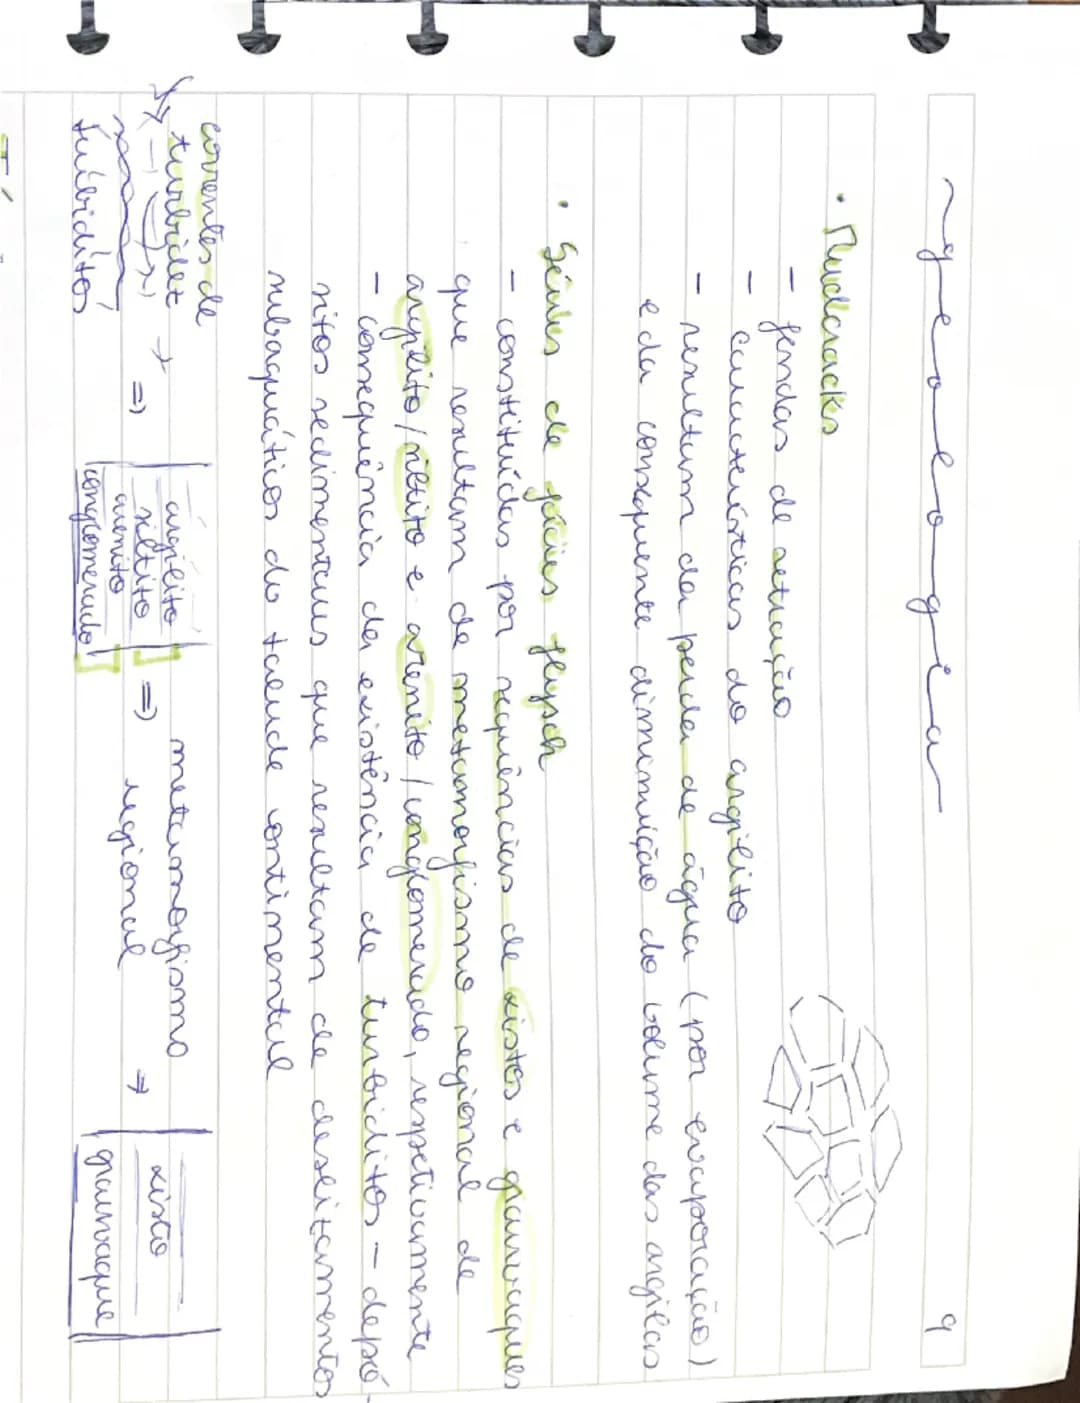 geologia
9
• Mudcracks
- fendas de retração
- características do argilito
- resultam da perda de água (por evaporação)
e da consequente diminuição do volume das argilas
• Séries de fácies flysch
- constituídas por sequências de xistos e grauvaques
que resultam de metamorfismo regional de
argilito/siltito e arenito/conglomerado, respetivamente
- consequência da existência de turbiditos - depó-
sitos sedimentares que resultam de deslizamentos
subaquáticos do talude continental
correntes de
turbidez
turbiditos
=>
argilito
siltito
arenito
conglomerado
=>
metamorfismo
regional
=>
xisto
grauvaque